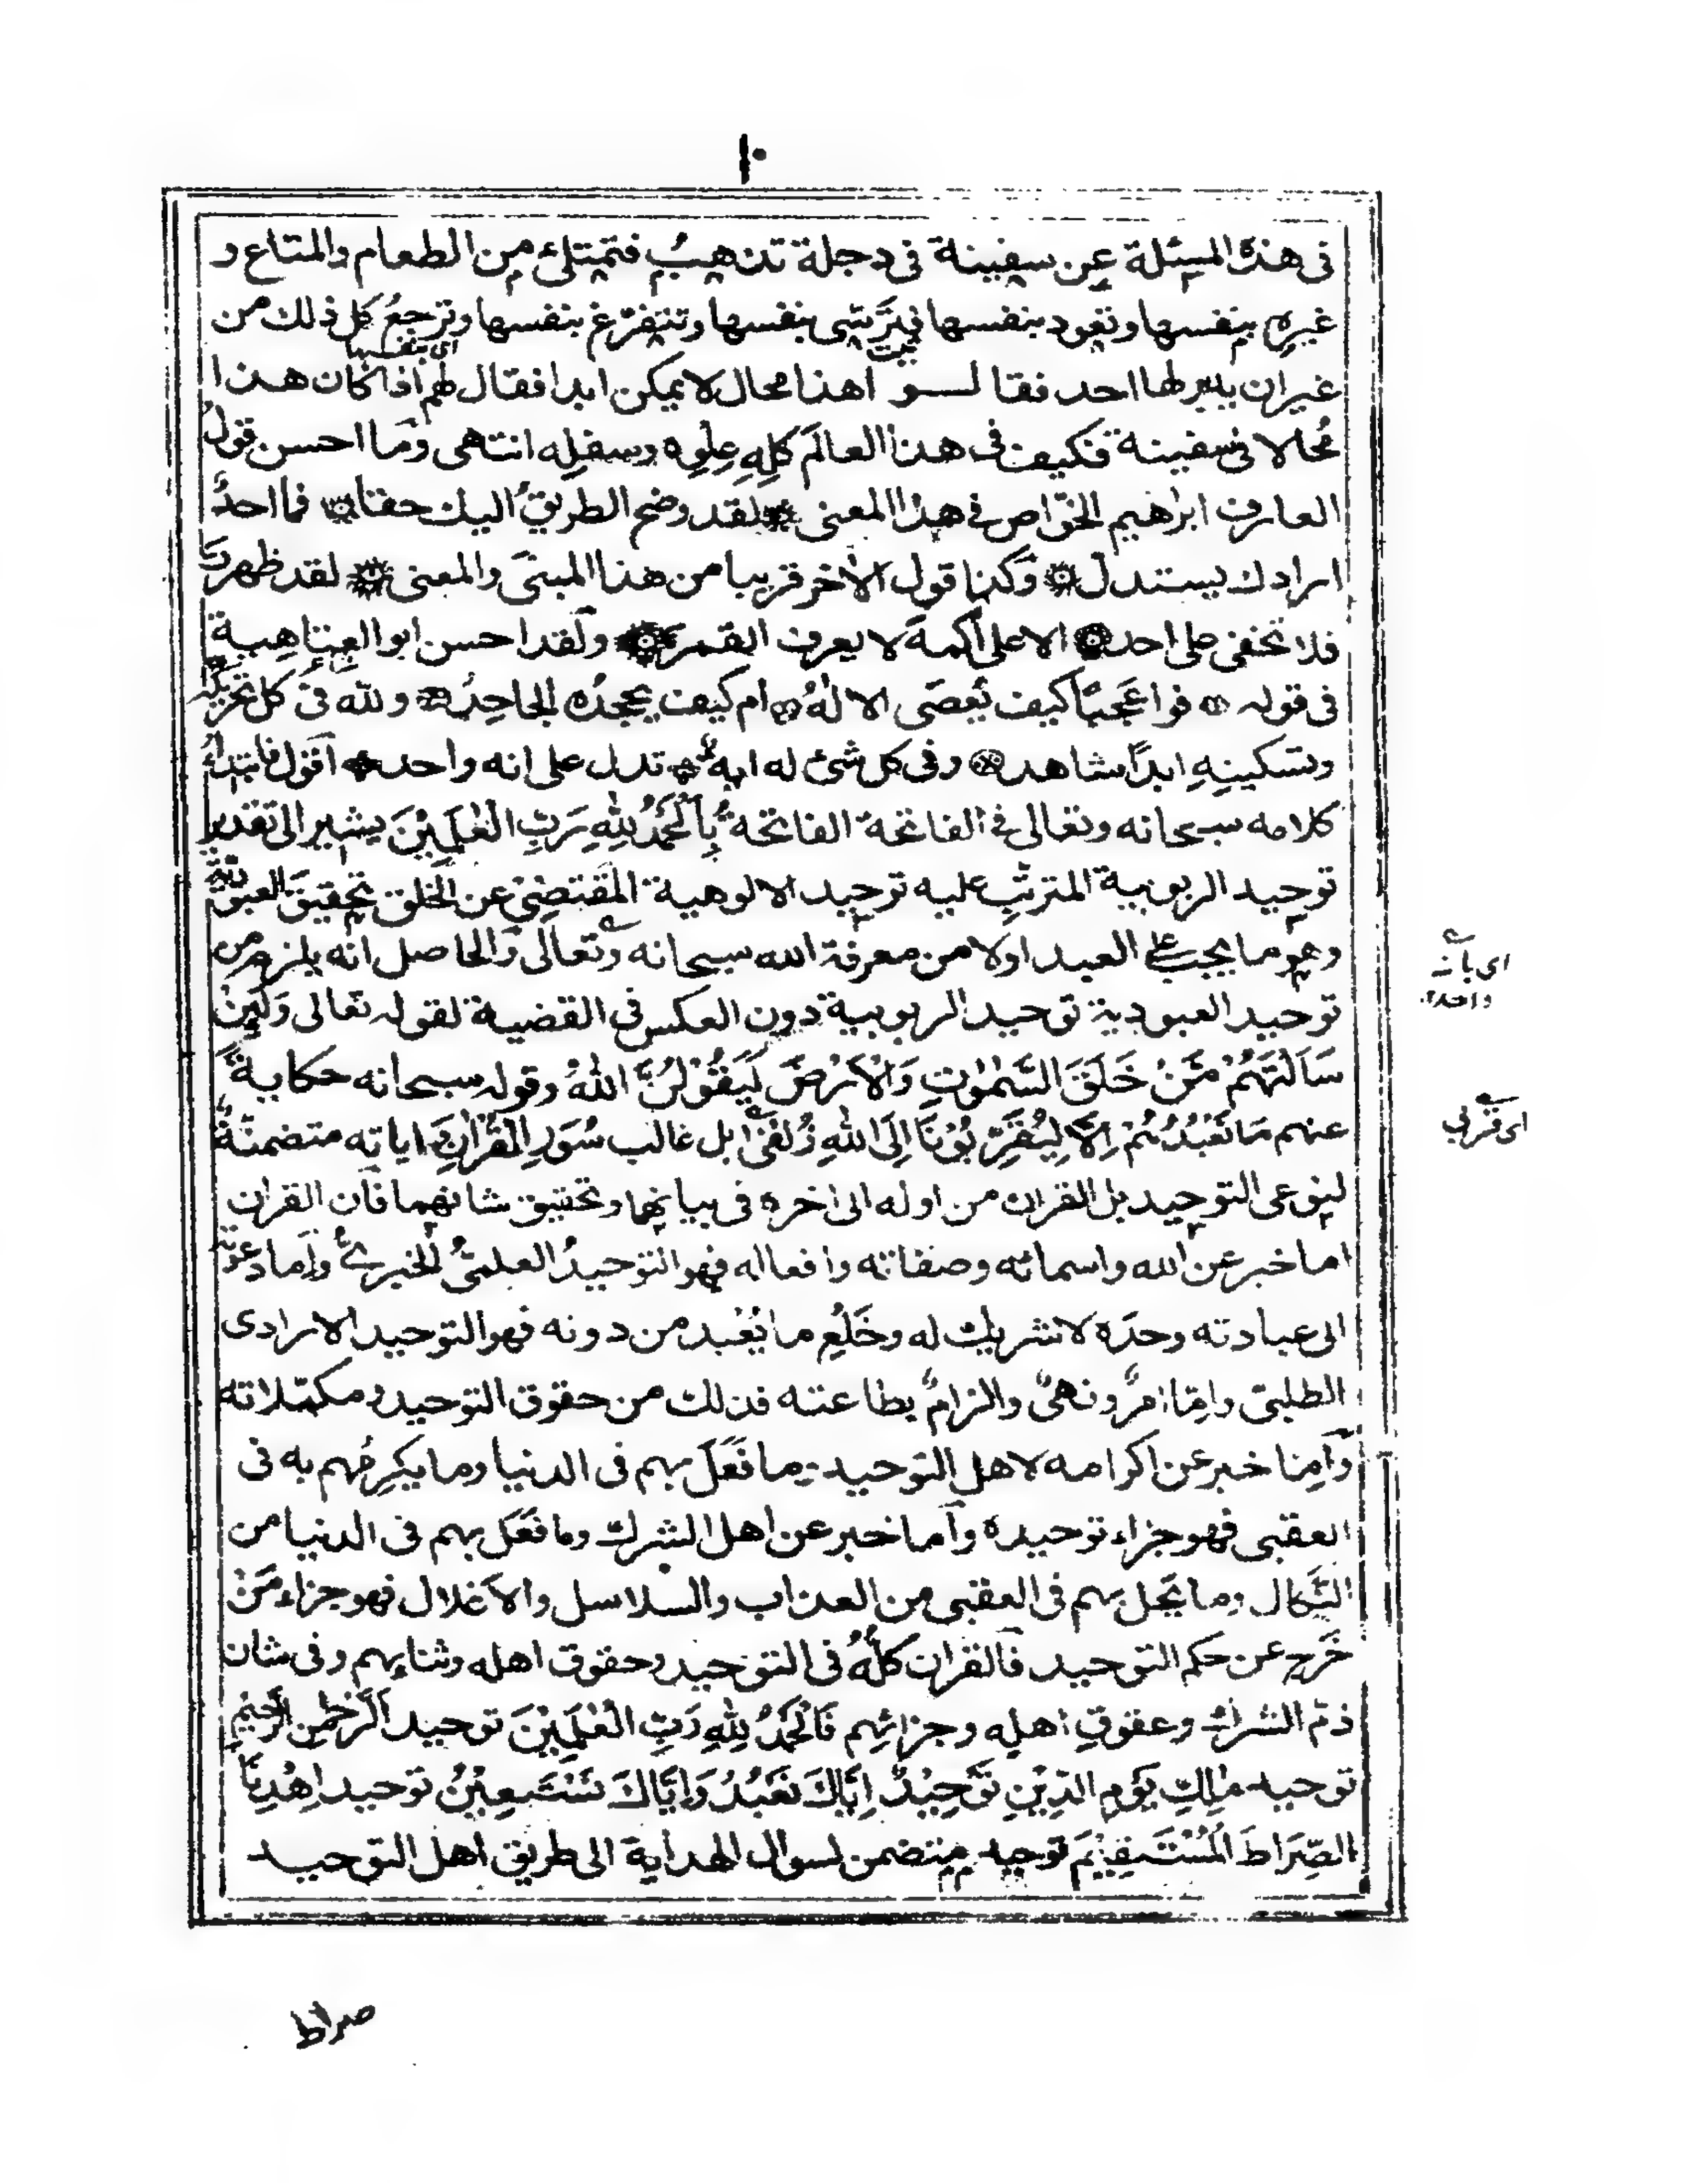 ١٠
فى هذه المسئلة عن سفينة فى دجلة تذهب فتمتلئ من الطعام والمتاع و
غيره بنفسها وتعود بنفسها فترسى بنفسها وتتفرغ بنفسها وترجع كل ذلك من
اى بنفسها
غير ان يدبرها احد فقالوا هذا محال لا يمكن ابدا فقال لهم اذا كان هذا
مُحالا فى سفينة فكيف فى هذا العالَم كلِهِ عِلْوِه وسفلِه انتهى ومَا احسن قول
العارف ابراهيم الخوّاص فى هذا المعنى لقد وضح الطريقُ اليك حقا فما احدٌ
ارادك يستدل وكذا قول الآخر قريبا من هذا المبنَى والمعنى لقد ظهرتَ
فلا تخفى على احد الا على اكمهَ لا يعرف القمرَ ولقد احسن ابو العتاهية
فى قوله فوا عَجَبًا كيف يُعصَى الا لٰهُ ام كيف يجحدُه الجاحِدُ ولله فى كل تحريكة
وتسكينةٍ ابدًا شاهد وفى كل شئ له ايةٌ تدل على انه واحد اقول فابتداءُ
كلامه سبحانه وتعالى فى الفاتحة الفاتحة بِاَلْحَمْدُ لِلّٰهِ رَبِّ الْعٰلَمِيْنَ يشير الى تقدير
توحيد الربوبية المترتبِ عليه توحيد الالوهية المقتضِىْ عن الخلق تحقيقَ العبودية
وهو ما يجب على العبد اولا من معرفة الله سبحانه وتعالى والحاصل انه يلزم من
توحيد العبودية توحيد الربوبية دون العكس فى القضية لقوله تعالى وَلَئِنْ
سَاَلْتَهُمْ مَّنْ خَلَقَ السَّمٰوٰتِ وَالْاَرْضَ لَيَقُوْلُنَّ اللّٰهُ وقوله سبحانه حكايةً
عنهم مَا نَعْبُدُهُمْ اِلَّا لِيُقَرِّبُوْنَا اِلَى اللّٰهِ زُلْفٰى بل غالب سُوَرِ القُرْاٰنِ واياته متضمنةٌ
لنوعى التوحيد بل القران من اوله الى اخره فى بيانهما وتحقيق شانهما فان القران
اما خبر عن الله واسمائه وصفاته وافعاله فهو التوحيدُ العلمىُّ الخبرىُّ واما دعوته
الى عبادته وحدَه لا شريك له وخَلْعِ ما يُعْبد من دونه فهو التوحيد الارادى
الطلبىّ وامّا امرٌ ونهىٌ والزامٌ بطاعته فذلك من حقوق التوحيد ومكمّلاته
وامّا خبر عن اكرامه لاهل التوحيد وما فَعَلَ بهم فى الدنيا وما يكرِمُهم به فى
العقبى فهو جزاء توحيده واما خبر عن اهل الشرك وما فعَل بهم فى الدنيا من
النَّكال وما يَحل بهم فى العقبى من العذاب والسلاسل والاغلال فهو جزاء مَنْ
خَرج عن حكم التوحيد فالقران كلُّهُ فى التوحيد وحقوق اهله وثنايهم وفى شان
ذمّ الشرك وعقوقِ اهلِه وجزائِهم فَالْحَمْدُ لِلّٰهِ رَبِّ الْعٰلَمِيْنَ توحيد الرَّحْمٰنِ الرَّحِيْمِ
توحيد مٰلِكِ يَوْمِ الدِّيْنِ تَوْحِيْدٌ اِيَّاكَ نَعْبُدُ وَاِيَّاكَ نَسْتَعِيْنُ توحيد اِهْدِنَا
الصِّرَاطَ الْمُسْتَقِيْمَ توحيد متضمن لسوال الهداية الى طريق اهل التوحيد
اى بانه
واحد
اى قربى
صراط